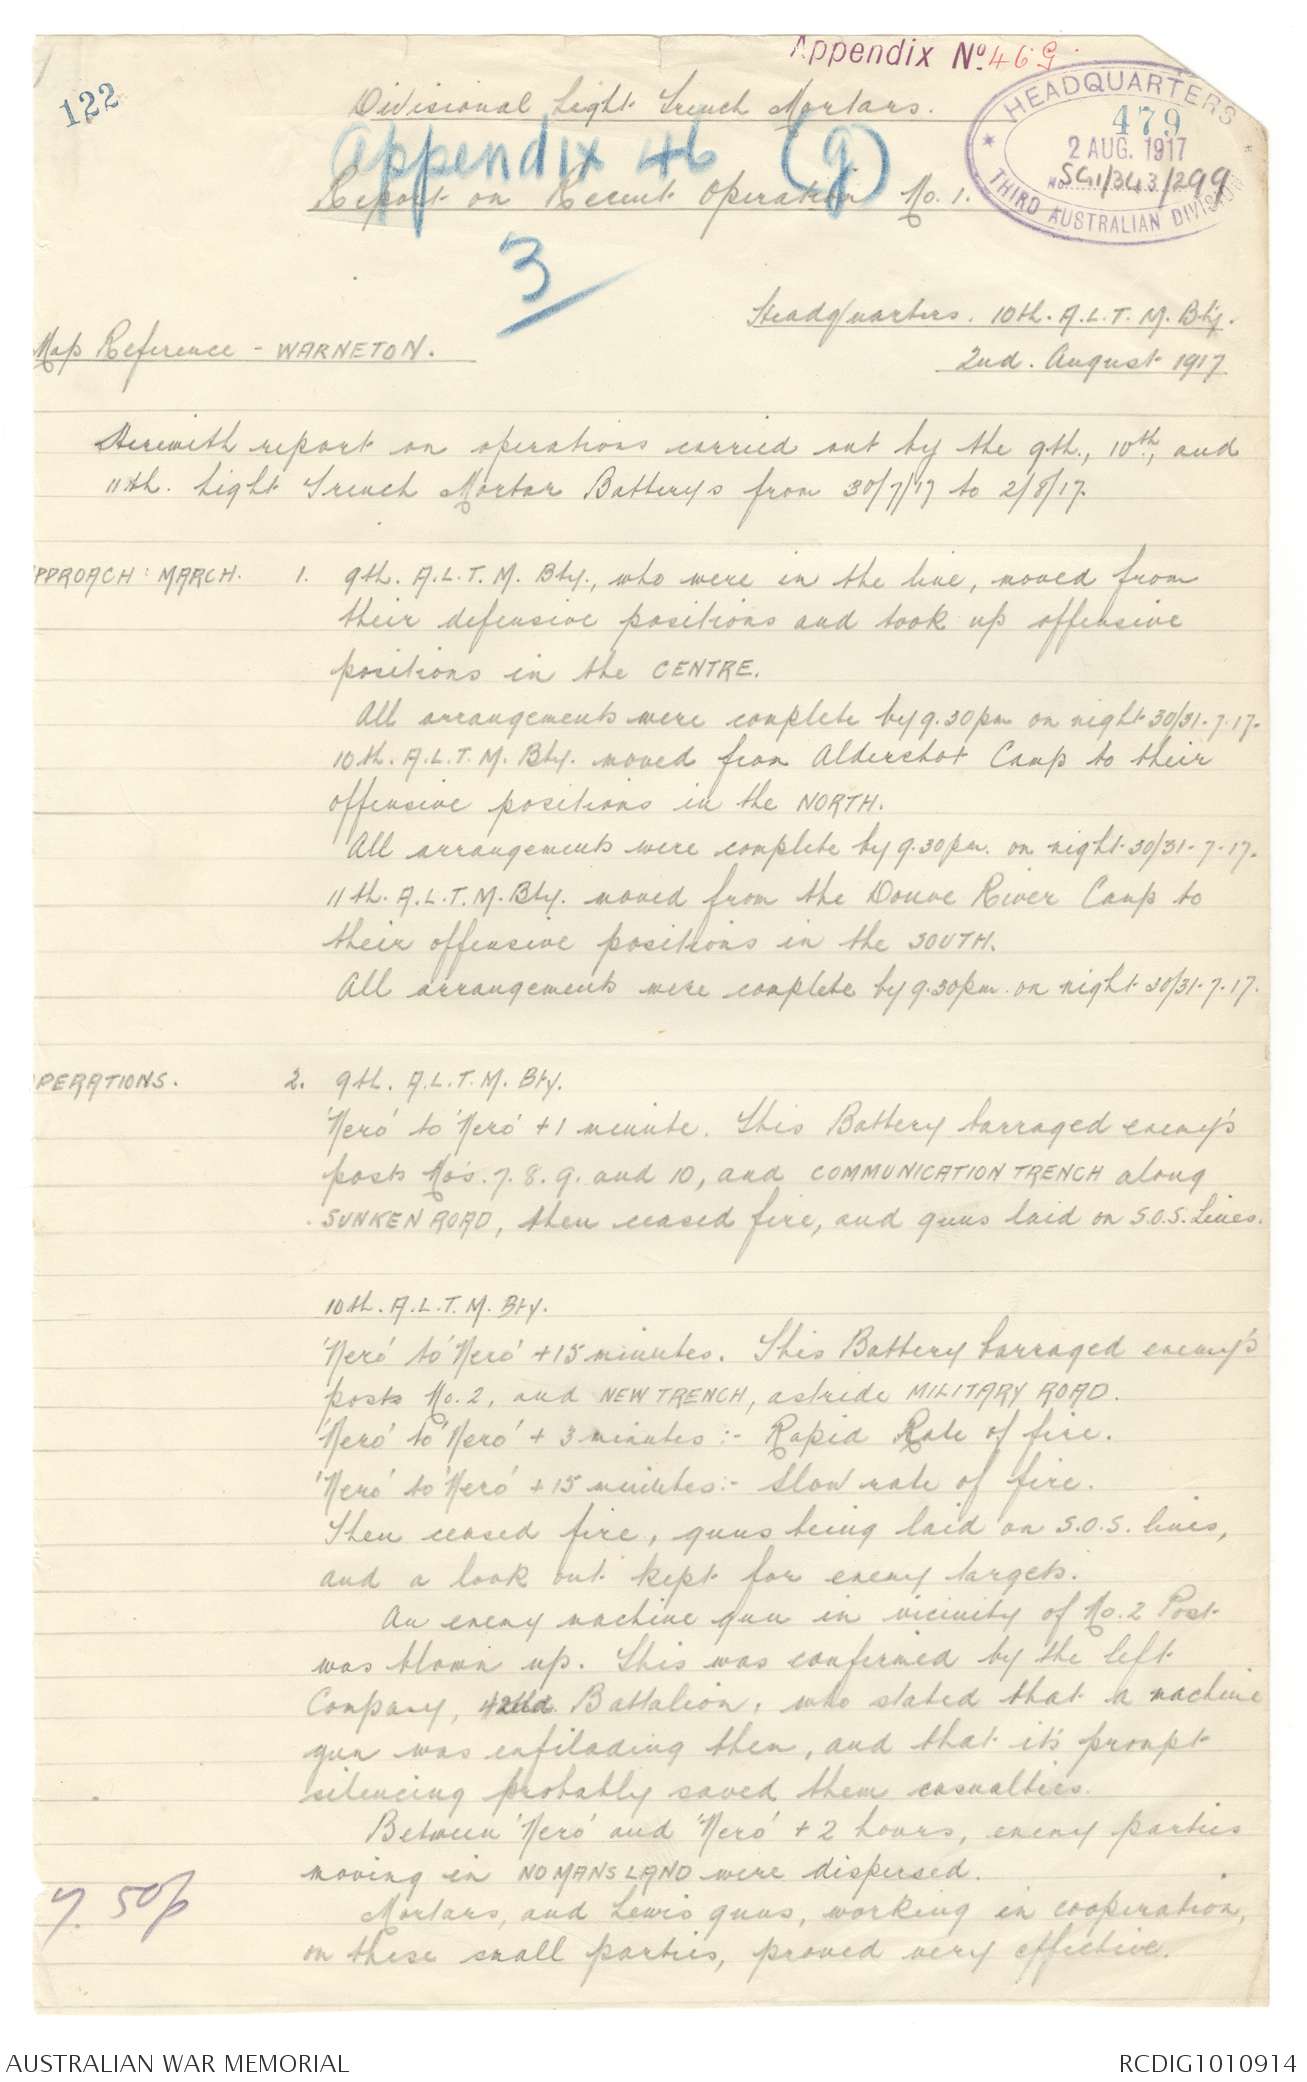 Appendix No. 46 G.
122
Divisional Light Trench Mortars.
Appendix 46 (g)
Report on Recent Operation No. 1.
HEADQUARTERS
479
2 AUG. 1917
SG1/343/299
THIRD AUSTRALIAN DIVISION
3
Headquarters. 10th. A.L.T.M. Bty.
Map Reference - WARNETON.
2nd. August 1917
Herewith report on operations carried out by the 9th., 10th., and
11th. Light Trench Mortar Batterys from 30/7/17 to 2/8/17.
APPROACH: MARCH. 1. 9th. A.L.T.M. Bty., who were in the line, moved from
their defensive positions and took up offensive
positions in the CENTRE.
All arrangements were complete by 9.30pm on night 30/31-7-17.
10th. A.L.T.M. Bty. moved from Aldershot Camp to their
offensive positions in the NORTH.
All arrangements were complete by 9.30pm. on night 30/31-7-17.
11th. A.L.T.M. Bty. moved from the Douve River Camp to
their offensive positions in the SOUTH.
All arrangements were complete by 9.30pm. on night 30/31-7-17.
OPERATIONS. 2. 9th. A.L.T.M. Bty.
'Nero' to 'Nero' + 1 minute. This Battery barraged enemy's
posts Nos. 7. 8. 9. and 10, and COMMUNICATION TRENCH along
SUNKEN ROAD, then ceased fire, and guns laid on S.O.S. Lines.
10th. A.L.T.M. Bty.
'Nero' to 'Nero' + 15 minutes. This Battery barraged enemy's
posts No. 2, and NEW TRENCH, astride MILITARY ROAD.
'Nero' to 'Nero' + 3 minutes :- Rapid Rate of fire.
'Nero' to 'Nero' + 15 minutes :- Slow rate of fire.
Then ceased fire, guns being laid on S.O.S. lines,
and a look out kept for enemy targets.
An enemy machine gun in vicinity of No. 2 Post
was blown up. This was confirmed by the left
Company, 42nd. Battalion, who stated that a machine
gun was enfilading them, and that it's prompt
silencing probably saved them casualties.
Between 'Nero' and 'Nero' + 2 hours, enemy parties
moving in NO MANS LAND were dispersed.
Mortars, and Lewis guns, working in cooperation,
on these small parties, proved very effective.
AUSTRALIAN WAR MEMORIAL
RCDIG1010914